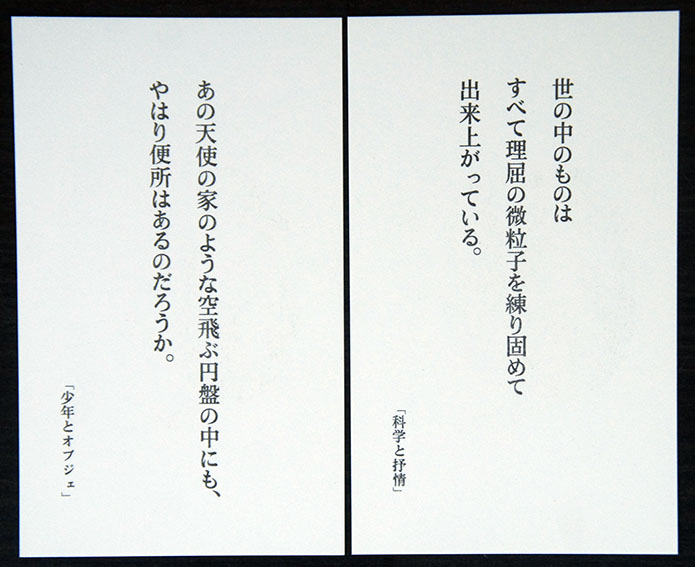 世の中のものは
すべて理屈の微粒子を練り固めて
出来上がっている。
「科学と抒情」
あの天使の家のような空飛ぶ円盤の中にも、
やはり便所はあるのだろうか。
「少年とオブジェ」